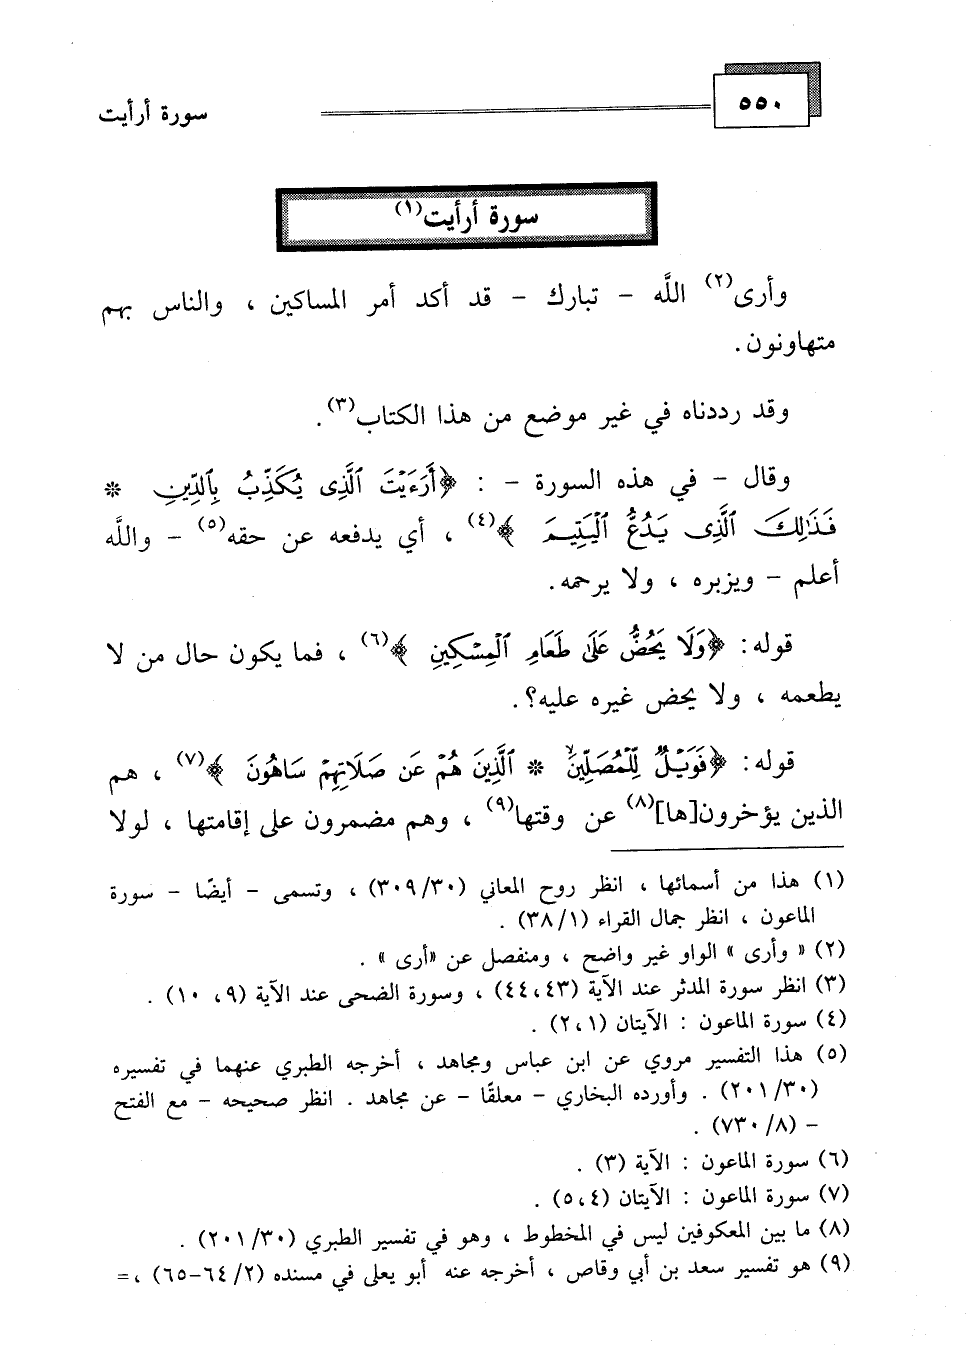 ٥٥٠
سورة أرأيت
سورة أرأيت(١)
وأرى(٢) اللَّه – تبارك – قد أكد أمر المساكين ، والناس بهم
متهاونون.
وقد رددناه في غير موضع من هذا الكتاب(٣).
وقال – في هذه السورة – : ﴿أَرَءَيْتَ ٱلَّذِى يُكَذِّبُ بِٱلدِّينِ *
فَذَٰلِكَ ٱلَّذِى يَدُعُّ ٱلْيَتِيمَ ﴾(٤) ، أي يدفعه عن حقه(٥) – واللَّه
أعلم – ويزبره ، ولا يرحمه.
قوله: ﴿وَلَا يَحُضُّ عَلَىٰ طَعَامِ ٱلْمِسْكِينِ ﴾(٦) ، فما يكون حال من لا
يطعمه ، ولا يحض غيره عليه؟.
قوله: ﴿فَوَيْلٌ لِّلْمُصَلِّينَ * ٱلَّذِينَ هُمْ عَن صَلَاتِهِمْ سَاهُونَ ﴾(٧) ، هم
الذين يؤخرون[ها](٨) عن وقتها(٩) ، وهم مضمرون على إقامتها ، لولا
(١) هذا من أسمائها ، انظر روح المعاني (٣٠/٣٠٩) ، وتسمى – أيضًا – سورة
الماعون ، انظر جمال القراء (١/٣٨) .
(٢) « وأرى » الواو غير واضح ، ومنفصل عن «أرى» .
(٣) انظر سورة المدثر عند الآية (٤٣،٤٤) ، وسورة الضحى عند الآية (٩، ١٠) .
(٤) سورة الماعون : الآيتان (١،٢) .
(٥) هذا التفسير مروي عن ابن عباس ومجاهد ، أخرجه الطبري عنهما في تفسيره
(٣٠/٢٠١) . وأورده البخاري – معلقًا – عن مجاهد . انظر صحيحه – مع الفتح
– (٨/٧٣٠) .
(٦) سورة الماعون : الآية (٣) .
(٧) سورة الماعون : الآيتان (٤،٥) .
(٨) ما بين المعكوفين ليس في المخطوط ، وهو في تفسير الطبري (٣٠/٢٠١) .
(٩) هو تفسير سعد بن أبي وقاص ، أخرجه عنه أبو يعلى في مسنده (٢/٦٤-٦٥) ،=